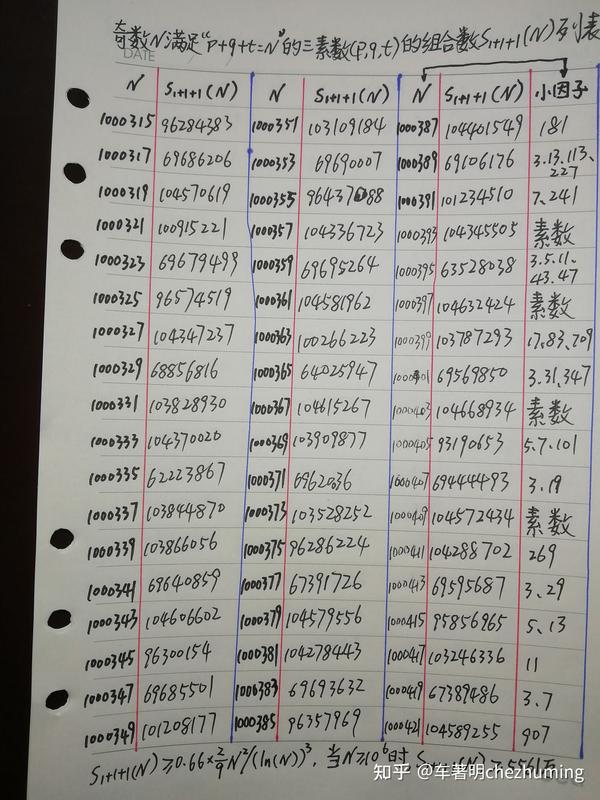 奇数N满足"p+q+t=N"的三素数(p,q,t)的组合数S₁₊₁₊₁(N)列表
DATE
N S₁₊₁₊₁(N) N S₁₊₁₊₁(N) N S₁₊₁₊₁(N) 小因子
1000315 96284383 1000351 103109184 1000387 104401549 181
1000317 69686206 1000353 69690007 1000389 69106176 3.13.113、
227
1000319 104570619 1000355 96437088 1000391 101234510 7、241
1000321 100915221 1000357 104336723 1000393 104345505 素数
1000323 69679499 1000359 69695264 1000395 63528038 3.5.11、
43.47
1000325 96574519 1000361 104581962 1000397 104632424 素数
1000327 104347237 1000363 100266223 1000399 103787293 17、83、709
1000329 68856816 1000365 64025947 1000401 69569850 3.31、347
1000331 103828930 1000367 104615267 1000403 104668934 素数
1000333 104370020 1000369 103909877 1000405 93190653 5.7.101
1000335 62223867 1000371 6962036 1000407 69444493 3.19
1000337 103844870 1000373 103528252 1000409 104572434 素数
1000339 103866056 1000375 96286224 1000411 104288702 269
1000341 69640859 1000377 67391726 1000413 69595687 3.29
1000343 104606602 1000379 104579556 1000415 95856965 5、13
1000345 96300154 1000381 104278443 1000417 103246336 11
1000347 69685501 1000383 69693632 1000419 67389486 3.7
1000349 101208177 1000385 96357969 1000421 104589255 907
S₁₊₁₊₁(N)≥0.66×2/9N²/(ln(N))³, 当N≥10⁶时 S₁₊₁₊₁(N)≥5561万
知乎 @车著明chezhuming